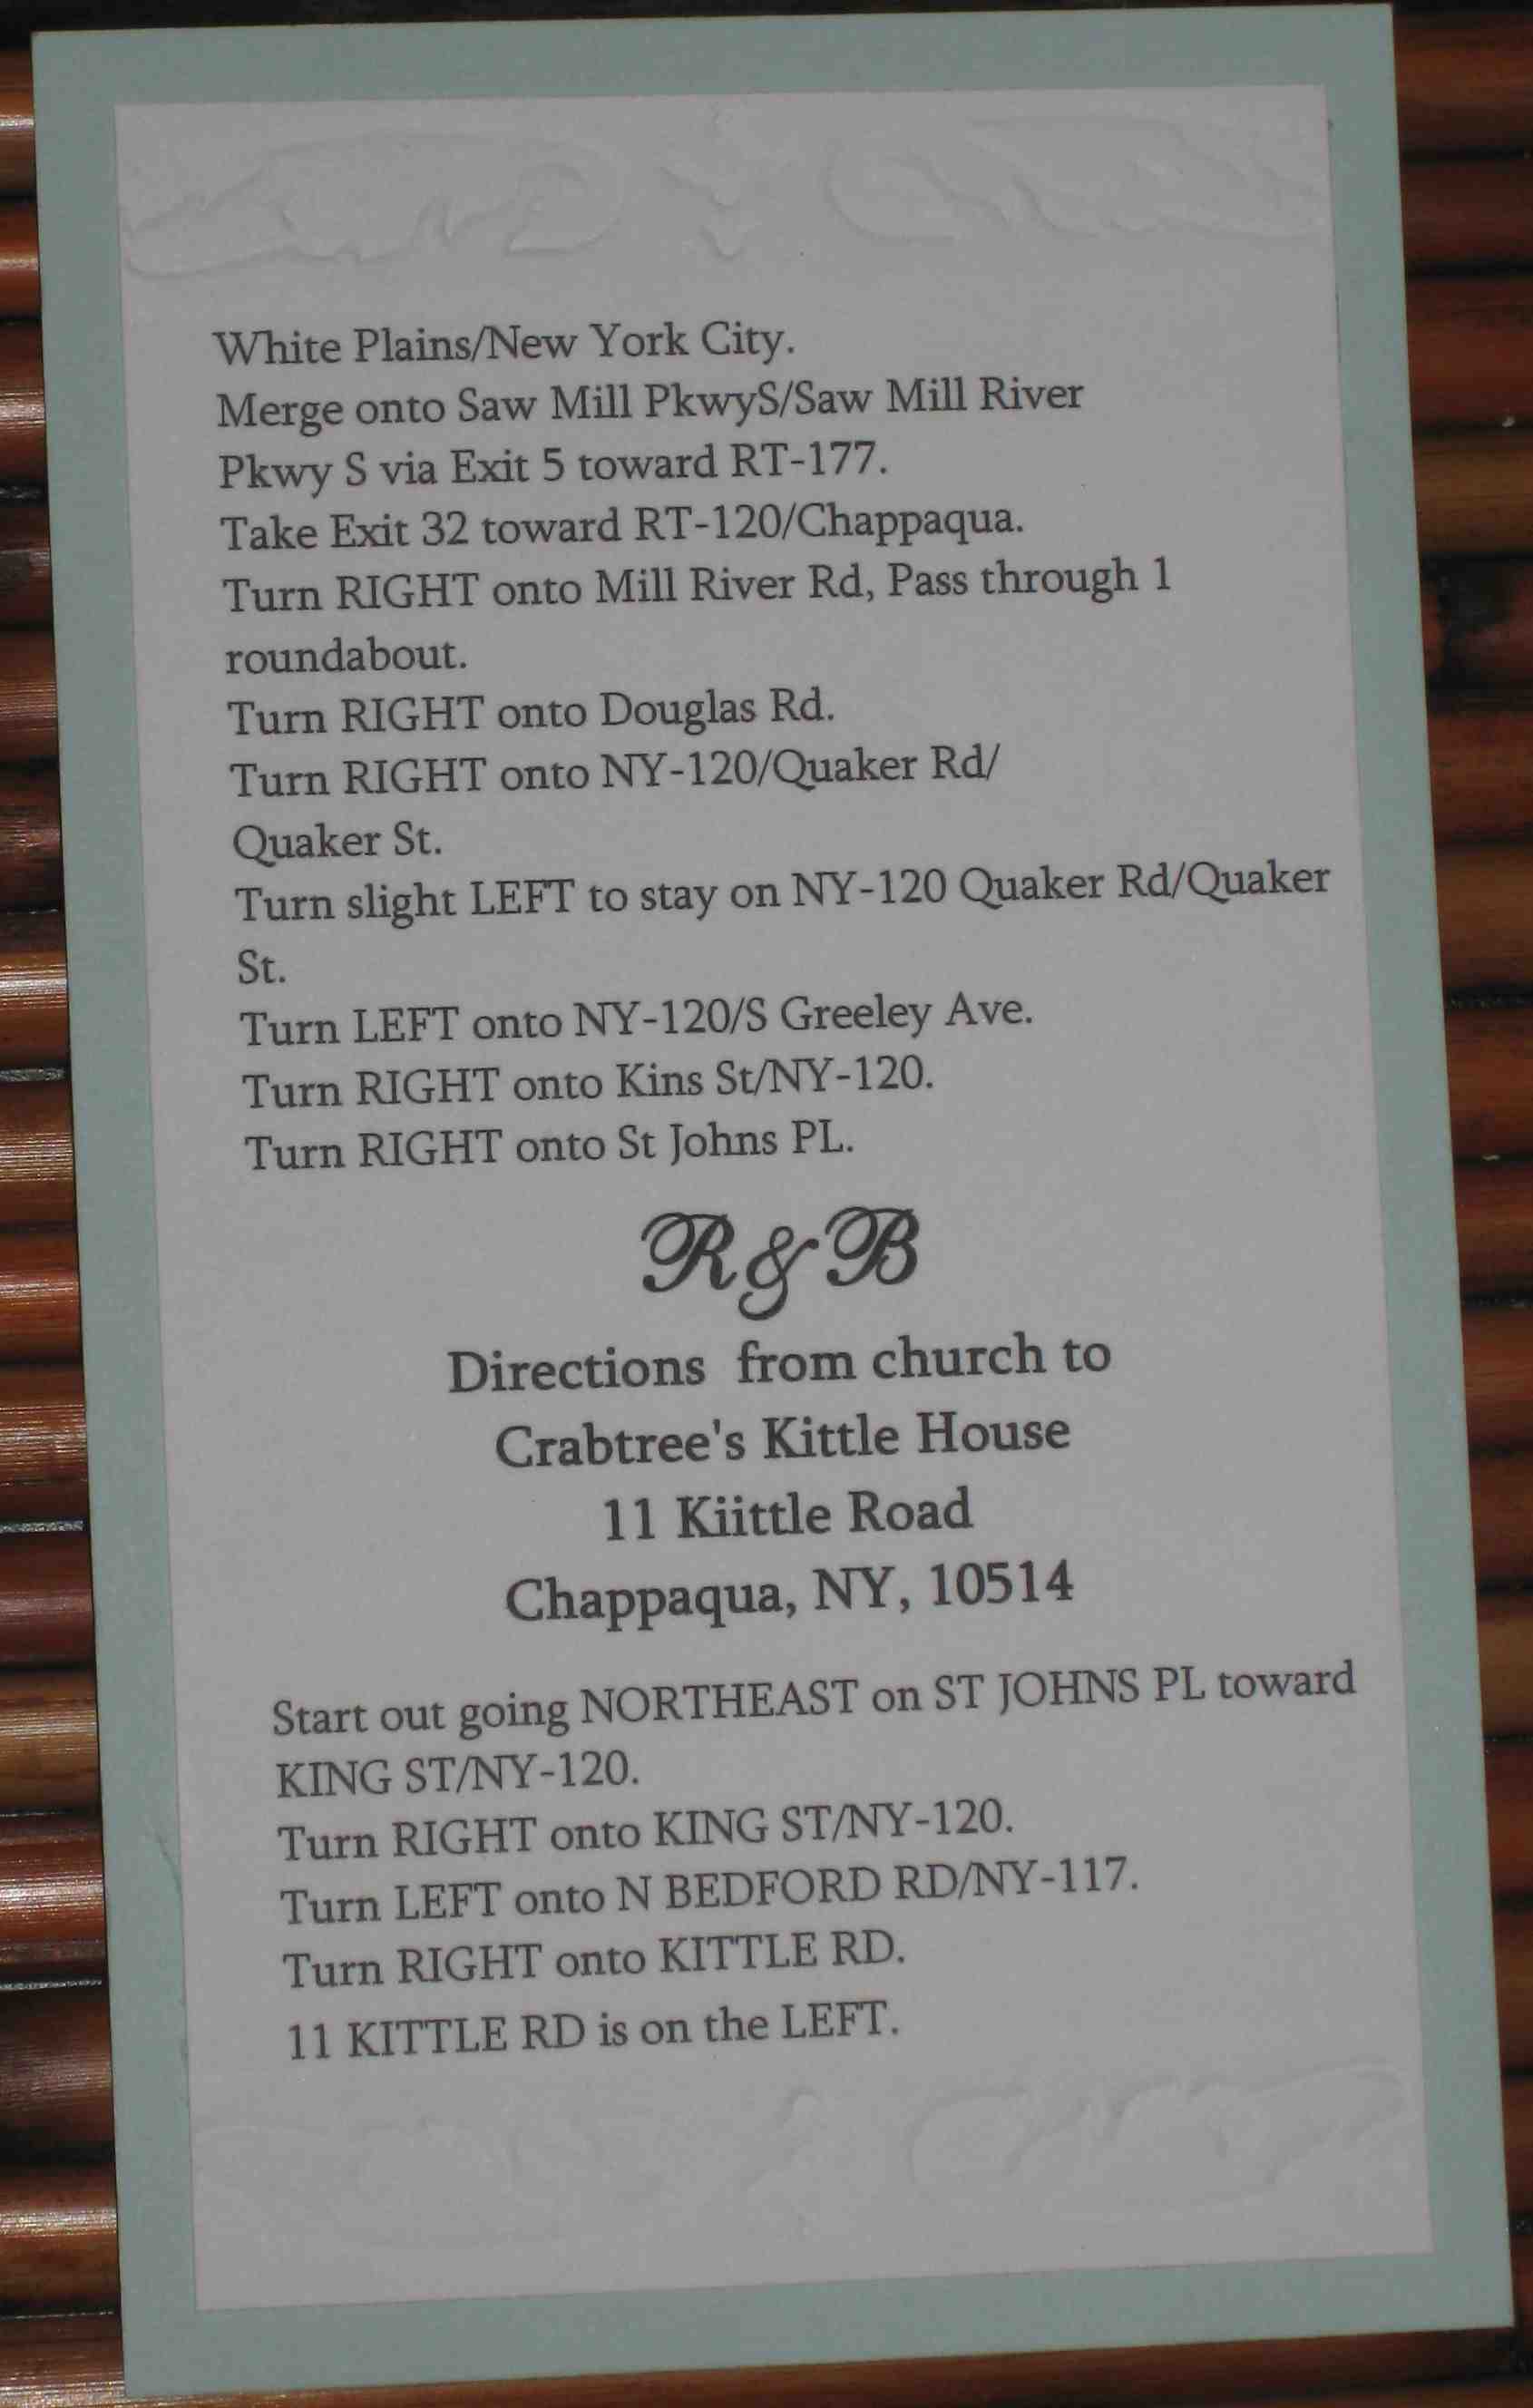 White Plains/New York City.
Merge onto Saw Mill PkwyS/Saw Mill River
Pkwy S via Exit 5 toward RT-177.
Take Exit 32 toward RT-120/Chappaqua.
Turn RIGHT onto Mill River Rd, Pass through 1
roundabout.
Turn RIGHT onto Douglas Rd.
Turn RIGHT onto NY-120/Quaker Rd/
Quaker St.
Turn slight LEFT to stay on NY-120 Quaker Rd/Quaker
St.
Turn LEFT onto NY-120/S Greeley Ave.
Turn RIGHT onto Kins St/NY-120.
Turn RIGHT onto St Johns PL.
R&B
Directions from church to
Crabtree's Kittle House
11 Kiittle Road
Chappaqua, NY, 10514
Start out going NORTHEAST on ST JOHNS PL toward
KING ST/NY-120.
Turn RIGHT onto KING ST/NY-120.
Turn LEFT onto N BEDFORD RD/NY-117.
Turn RIGHT onto KITTLE RD.
11 KITTLE RD is on the LEFT.